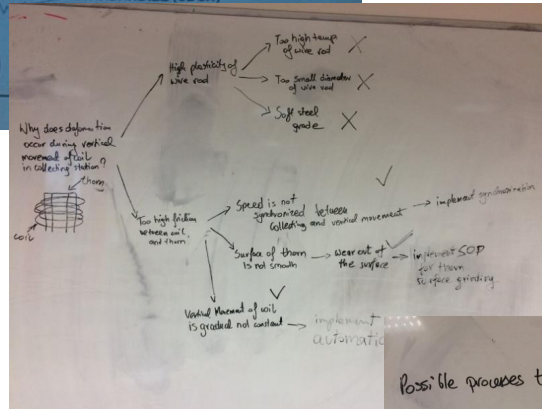 Why does deformation
occur during vertical
movement of coil
in collecting station?
thorn
coil
High plasticity of
wire rod
Too high temp
of wire rod
Too small diameter
of wire rod
Soft steel
grade
Too high friction
between coil
and thorn
Speed is not
synchronized between
collecting and vertical movement
implement synchronization
Surface of thorn
is not smooth
Wear out of
the surface
implement SOP
for thorn
surface grinding
Vertical Movement of coil
is gradual not constant
implement
automatic
Possible processes t